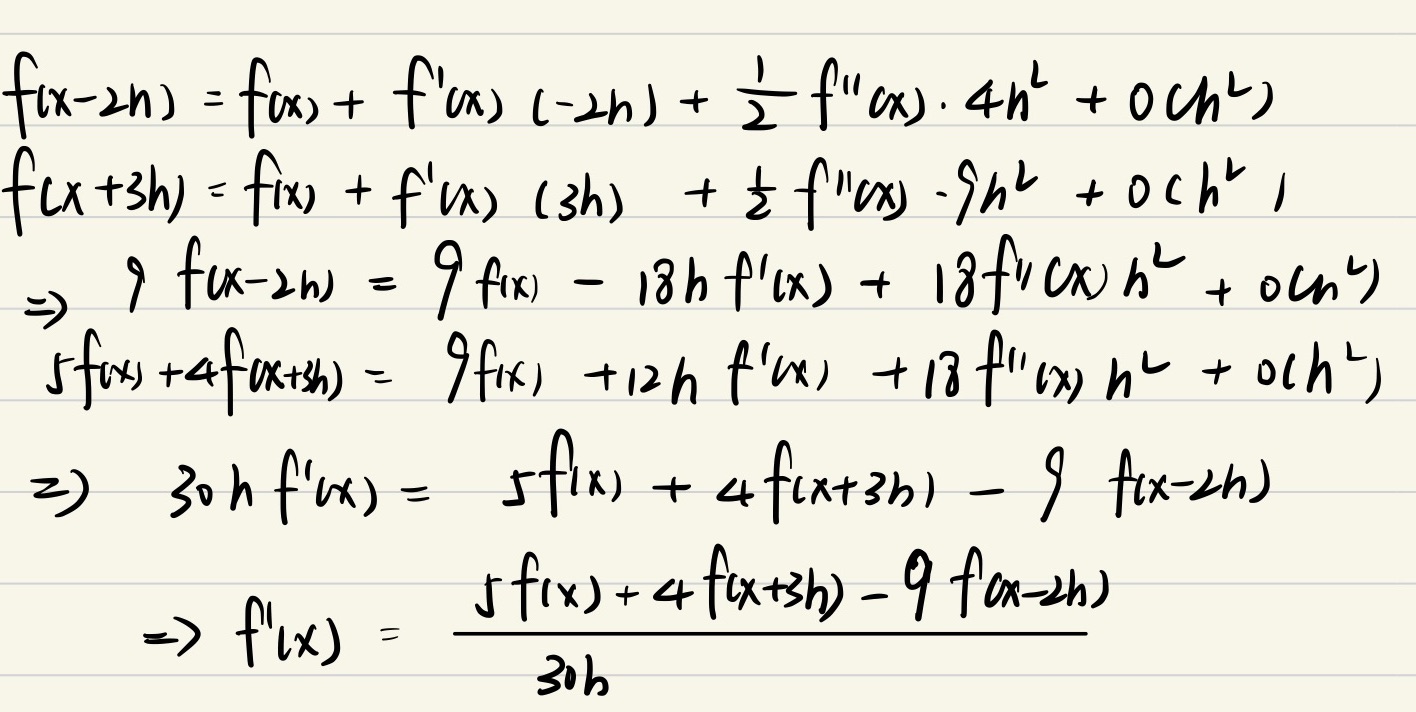 f(x-2h) = f(x) + f'(x) (-2h) + 1/2 f''(x) · 4h² + o(h²)
f(x+3h) = f(x) + f'(x) (3h) + 1/2 f''(x) · 9h² + o(h²)
⇒ 9 f(x-2h) = 9 f(x) - 18h f'(x) + 18f''(x) h² + o(h²)
5f(x) + 4f(x+3h) = 9f(x) + 12h f'(x) + 18 f''(x) h² + o(h²)
⇒ 30h f'(x) = 5f(x) + 4f(x+3h) - 9 f(x-2h)
⇒ f'(x) = (5f(x) + 4f(x+3h) - 9f(x-2h)) / 30h